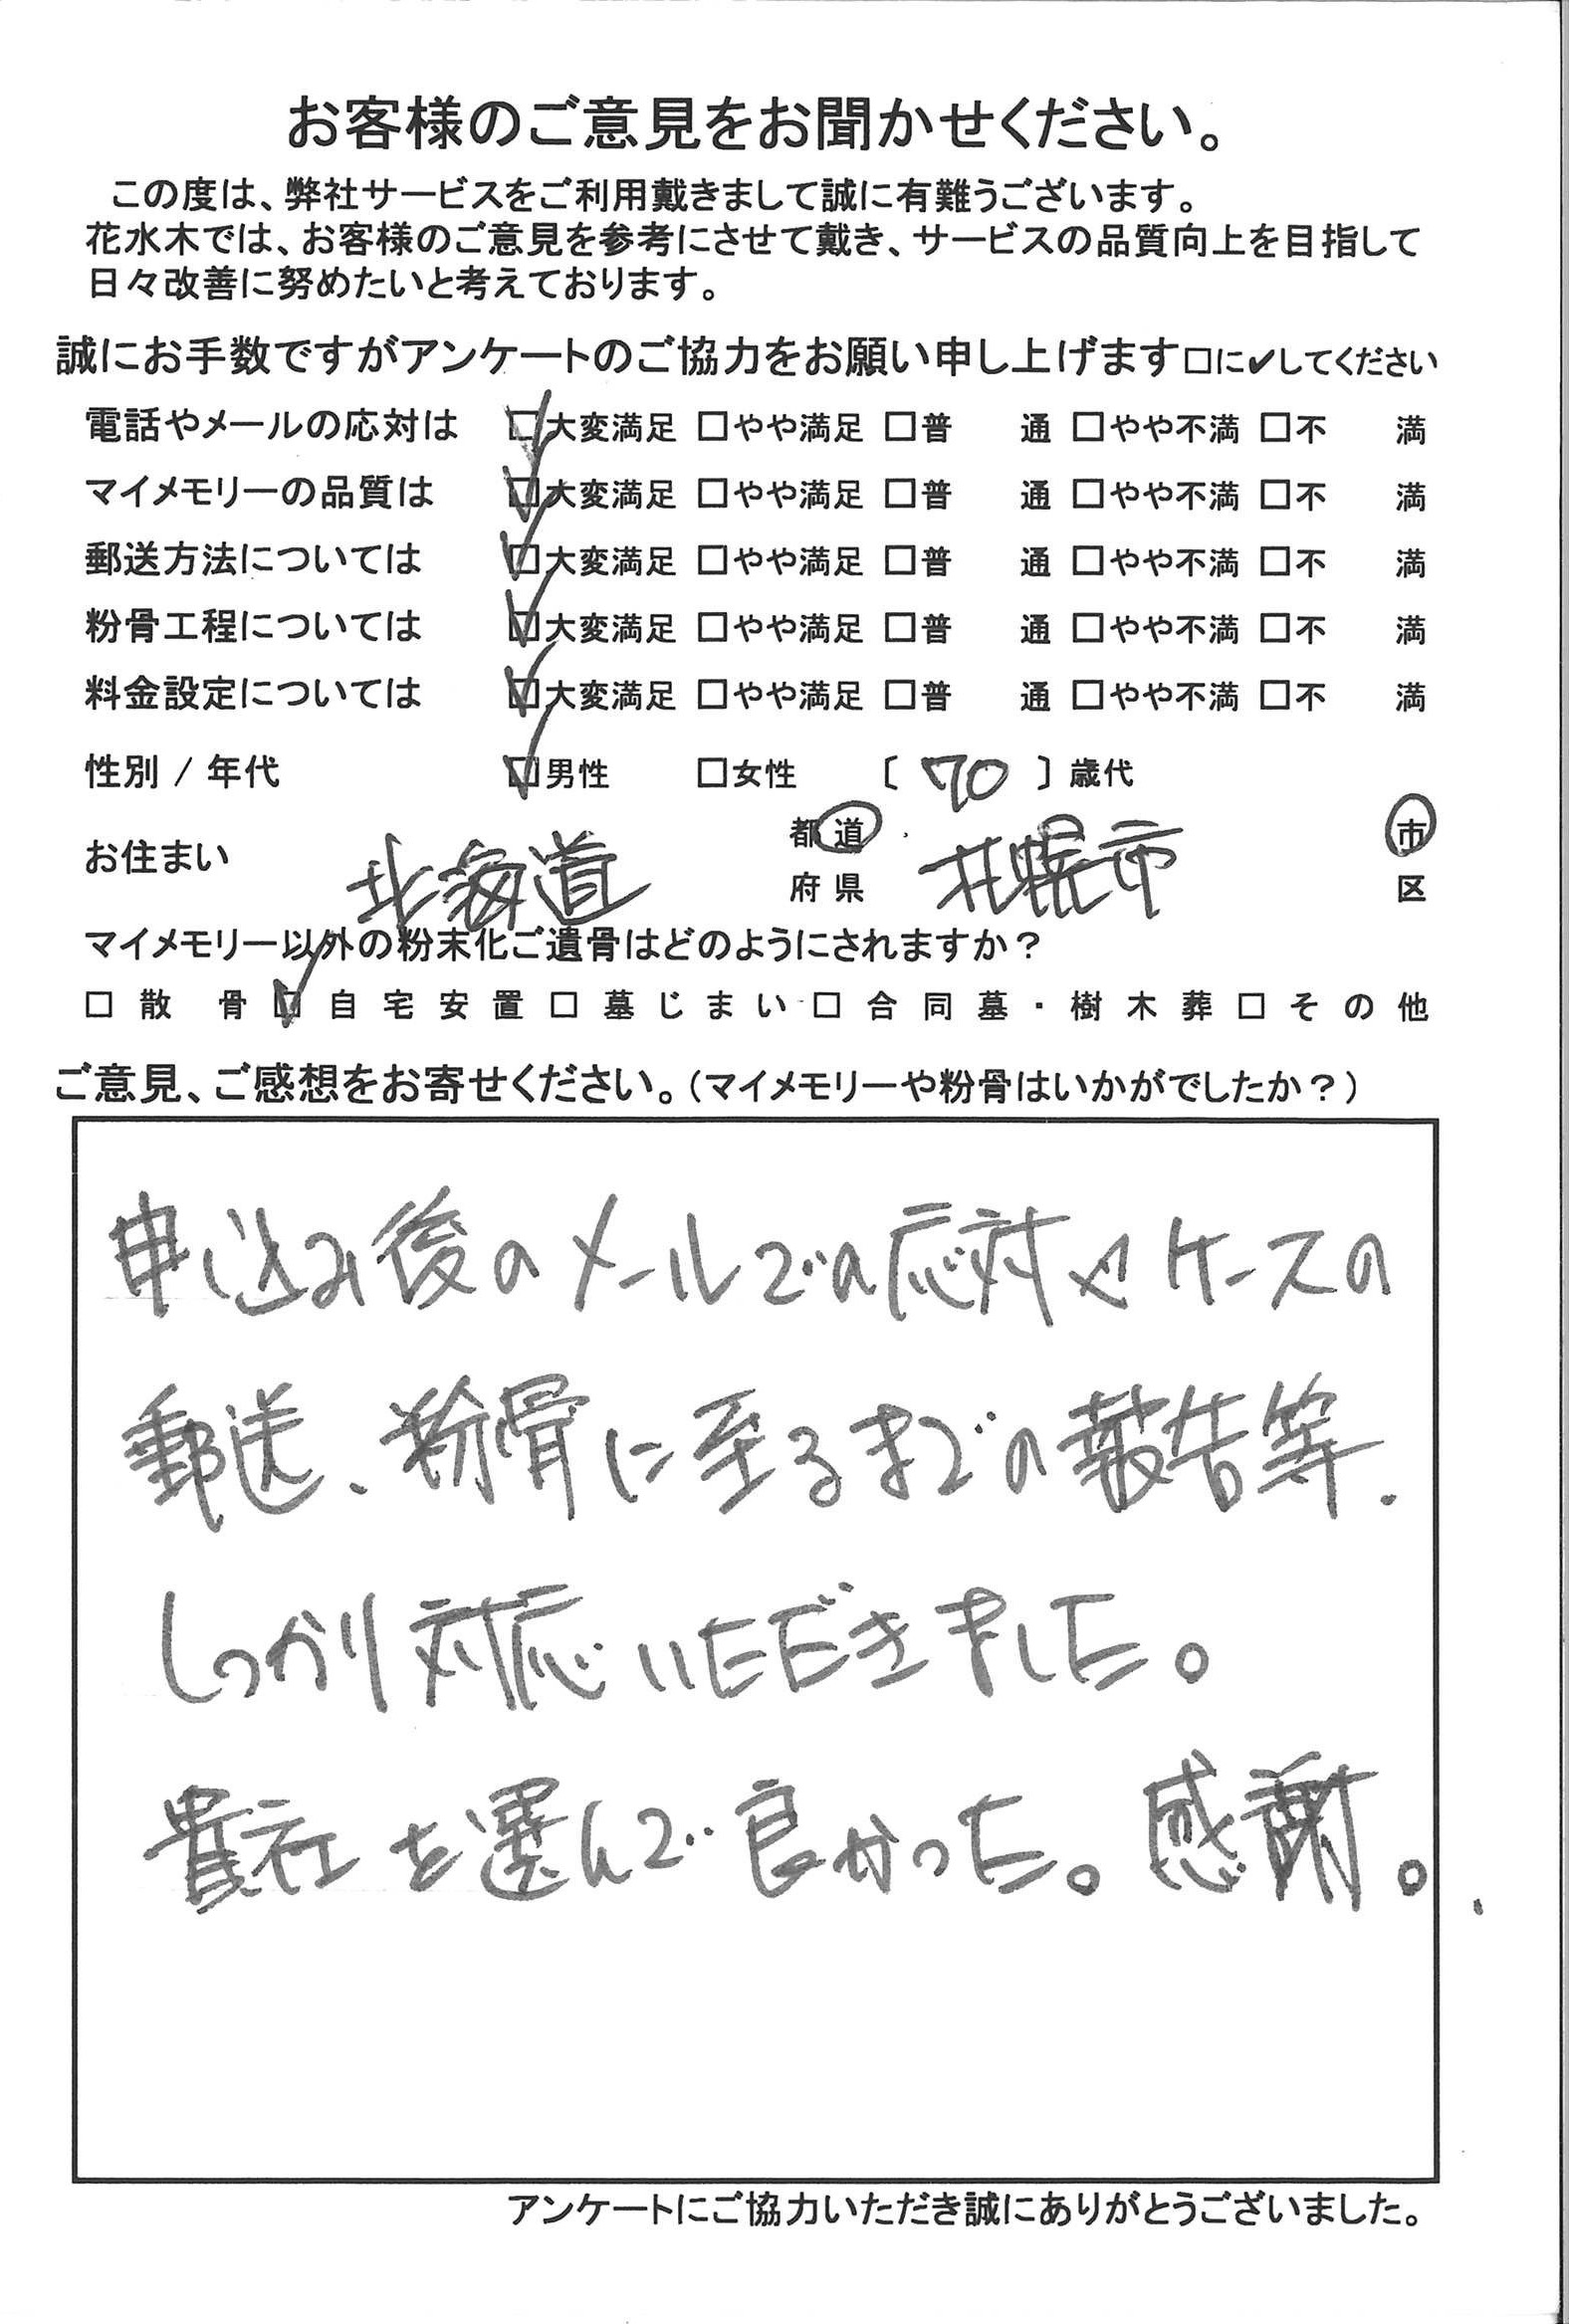 お客様のご意見をお聞かせください。
この度は、弊社サービスをご利用戴きまして誠に有難うございます。
花水木では、お客様のご意見を参考にさせて戴き、サービスの品質向上を目指して
日々改善に努めたいと考えております。
誠にお手数ですがアンケートのご協力をお願い申し上げます□に✔してください
電話やメールの応対は ☑大変満足 □やや満足 □普 通 □やや不満 □不 満
マイメモリーの品質は ☑大変満足 □やや満足 □普 通 □やや不満 □不 満
郵送方法については ☑大変満足 □やや満足 □普 通 □やや不満 □不 満
粉骨工程については ☑大変満足 □やや満足 □普 通 □やや不満 □不 満
料金設定については ☑大変満足 □やや満足 □普 通 □やや不満 □不 満
性別 / 年代 ☑男性 □女性 〔 70 〕歳代
お住まい 北海道 都道府県 札幌市 市区
マイメモリー以外の粉末化ご遺骨はどのようにされますか？
□散 骨 ☑自宅安置 □墓じまい □合同墓・樹木葬 □その他
ご意見、ご感想をお寄せください。（マイメモリーや粉骨はいかがでしたか？）
申し込み後のメールでの応対やケースの
郵送、粉骨に至るまでの報告等、
しっかり対応いただきました。
貴社を選んで良かった。感謝。
アンケートにご協力いただき誠にありがとうございました。